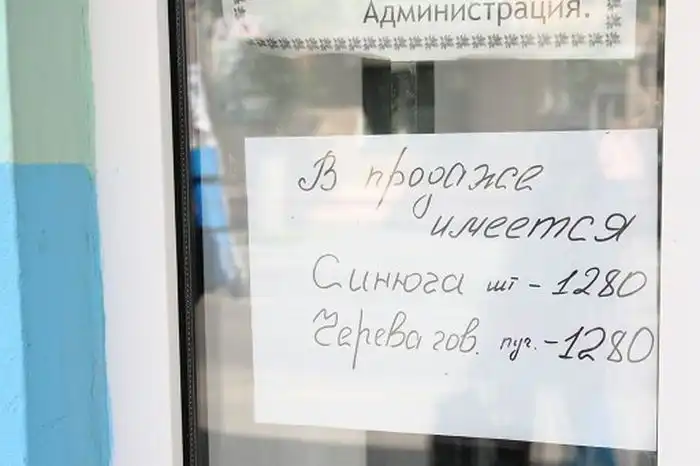 Администрация.
В продаже
имеется
Синюга шт - 1280
Черева гов. пуч. - 1280